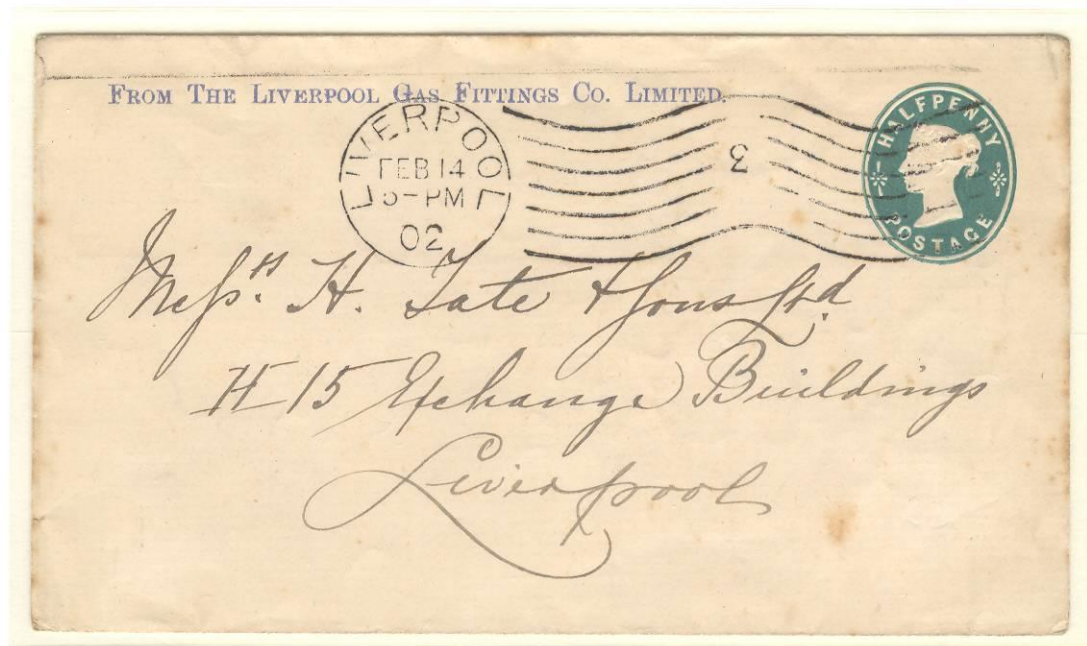 FROM THE LIVERPOOL GAS FITTINGS CO. LIMITED.
LIVERPOOL
FEB 14
5-PM
02
3
HALFPENNY
POSTAGE
Messrs. H. Tate & Sons Ltd
H 15 Exchange Buildings
Liverpool